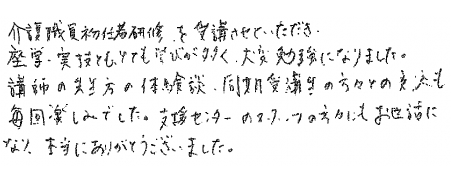 介護職員初任者研修を受講させていただき、
座学・実技ともとても学びが多く、大変勉強になりました。
講師の先生方の体験談、同期受講生の方々との交流も
毎回楽しみでした。支援センターのスタッフの方々にもお世話に
なり、本当にありがとうございました。